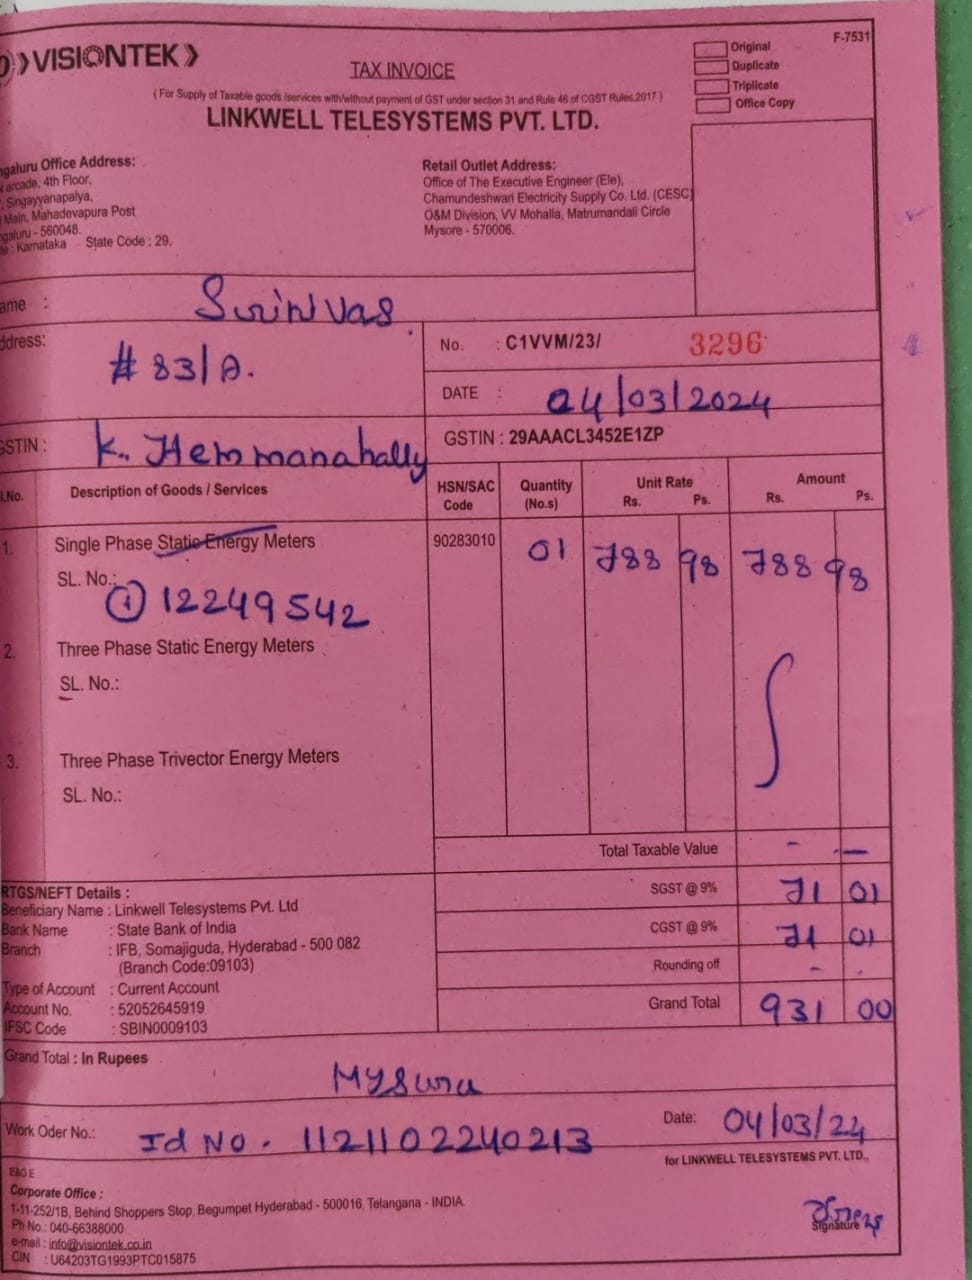 VISIONTEK
TAX INVOICE
( For Supply of Taxable goods /services with/without payment of GST under section 31 and Rule 46 of CGST Rules,2017 )
LINKWELL TELESYSTEMS PVT. LTD.
F-7531
Original
Duplicate
Triplicate
Office Copy
Office Address:
arcade, 4th Floor,
Singayyanapalya,
Main, Mahadevapura Post
- 560048.
: Karnataka State Code : 29.
Retail Outlet Address:
Office of The Executive Engineer (Ele),
Chamundeshwari Electricity Supply Co. Ltd. (CESC)
O&M Division, VV Mohalla, Matrumandali Circle
Mysore - 570006.
: Srinivas
# 83/A.
No. : C1VVM/23/ 3296
DATE : 04/03/2024
GSTIN : 29AAACL3452E1ZP
K. Hemmanahally
No. Description of Goods / Services HSN/SAC Code Quantity (No.s) Unit Rate Rs. Ps. Amount Rs. Ps.
1. Single Phase Static Energy Meters 90283010 01 788 98 788 98
SL. No.:
① 12249542
2. Three Phase Static Energy Meters
SL. No.:
3. Three Phase Trivector Energy Meters
SL. No.:
Total Taxable Value - -
SGST @ 9% 71 01
CGST @ 9% 71 01
Rounding off - .
Grand Total 931 00
RTGS/NEFT Details :
Beneficiary Name : Linkwell Telesystems Pvt. Ltd
Bank Name : State Bank of India
Branch : IFB, Somajiguda, Hyderabad - 500 082
(Branch Code:09103)
Type of Account : Current Account
Account No. : 52052645919
IFSC Code : SBIN0009103
Grand Total : In Rupees
Mysuru
Work Oder No.: Id No. 1121102240213
Date: 04/03/24
for LINKWELL TELESYSTEMS PVT. LTD.,
E&O E
Corporate Office :
1-11-252/1B, Behind Shoppers Stop, Begumpet Hyderabad - 500016, Telangana - INDIA
Ph No.: 040-66388000
e-mail : info@visiontek.co.in
CIN : U64203TG1993PTC015875
Signature